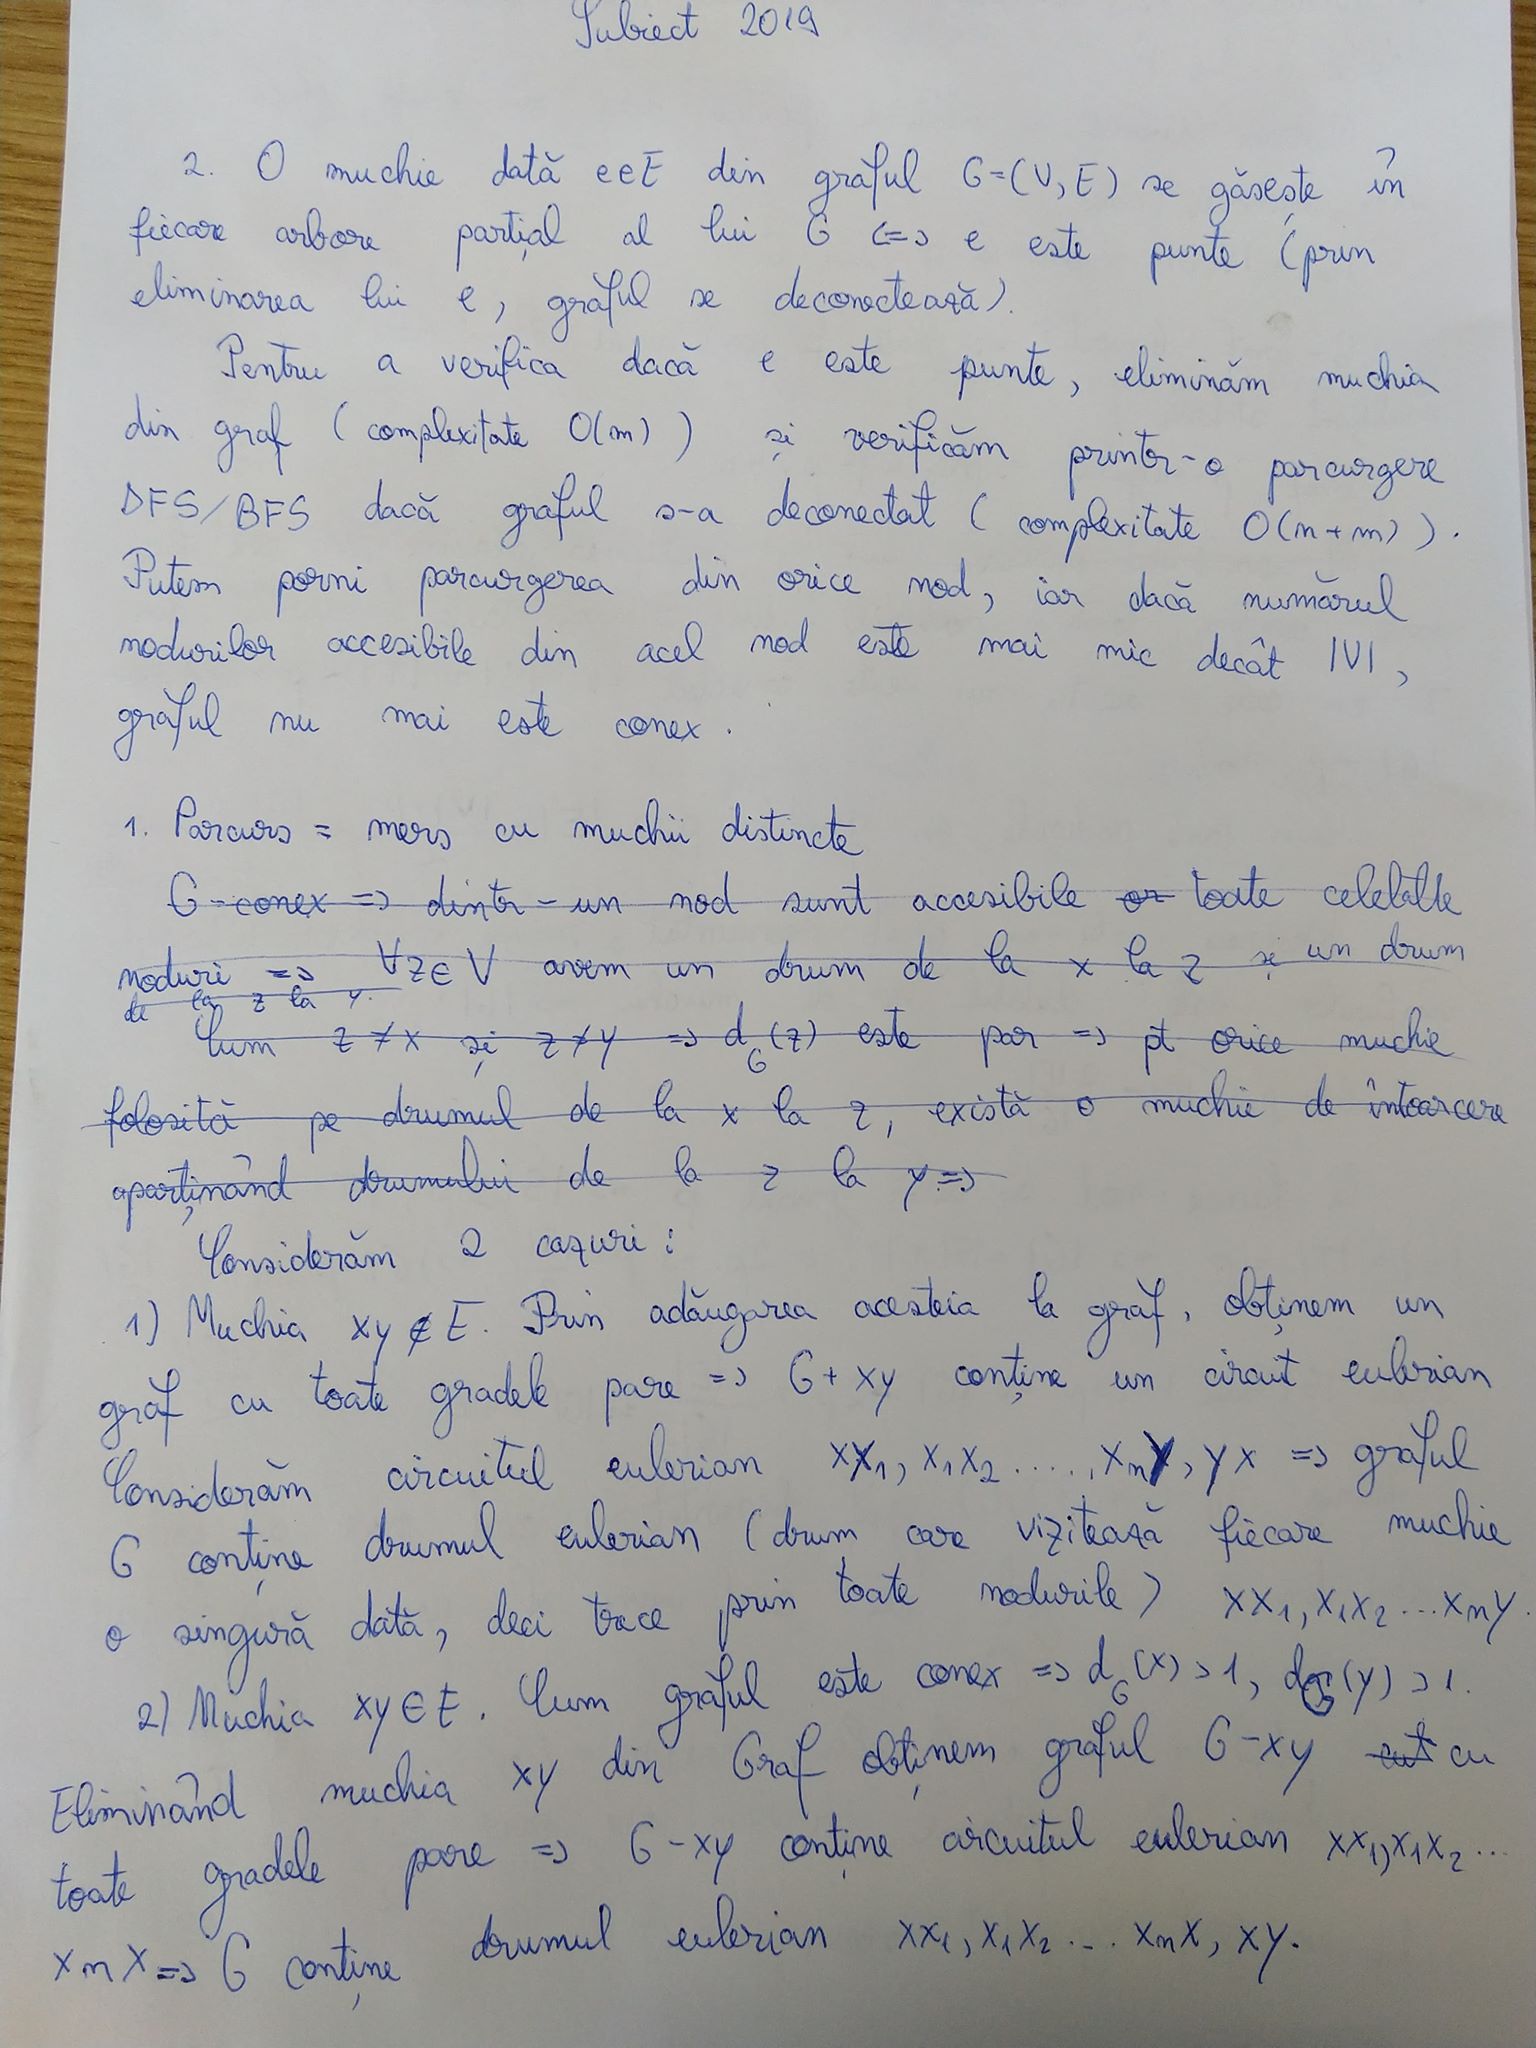 Subiect 2019
2. O muchie dată e∈E din graful G=(V,E) se găsește în
fiecare arbore parțial al lui G <=> e este punte (prin
eliminarea lui e, graful se deconectează).
Pentru a verifica dacă e este punte, eliminăm muchia
din graf (complexitate O(m)) și verificăm printr-o parcurgere
DFS/BFS dacă graful s-a deconectat (complexitate O(n+m)).
Putem porni parcurgerea din orice nod, iar dacă numărul
nodurilor accesibile din acel nod este mai mic decât |V|,
graful nu mai este conex.
1. Parcurs = mers cu muchii distincte
G-conex => dintr-un nod sunt accesibile or toate celelalte
noduri => ∀z∈V avem un drum de la x la z și un drum
de la z la y.
Cum z≠x și z≠y => d_G(z) este par => pt orice muchie
folosită pe drumul de la x la z, există o muchie de întoarcere
aparținând drumului de la z la y =>
Considerăm 2 cazuri:
1) Muchia xy∉E. Prin adăugarea acesteia la graf, obținem un
graf cu toate gradele pare => G+xy conține un circuit eulerian
Considerăm circuitul eulerian xx₁, x₁x₂ ....., xₙy, yx => graful
G conține drumul eulerian (drum care vizitează fiecare muchie
o singură dată, deci trece prin toate nodurile) xx₁, x₁x₂ ... xₙy.
2) Muchia xy∈E. Cum graful este conex => d_G(x)>1, d_G(y)>1.
Eliminând muchia xy din Graf obținem graful G-xy cu
toate gradele pare => G-xy conține circuitul eulerian xx₁, x₁x₂ ...
xₙx => G conține drumul eulerian xx₁, x₁x₂ ... xₙx, xy.